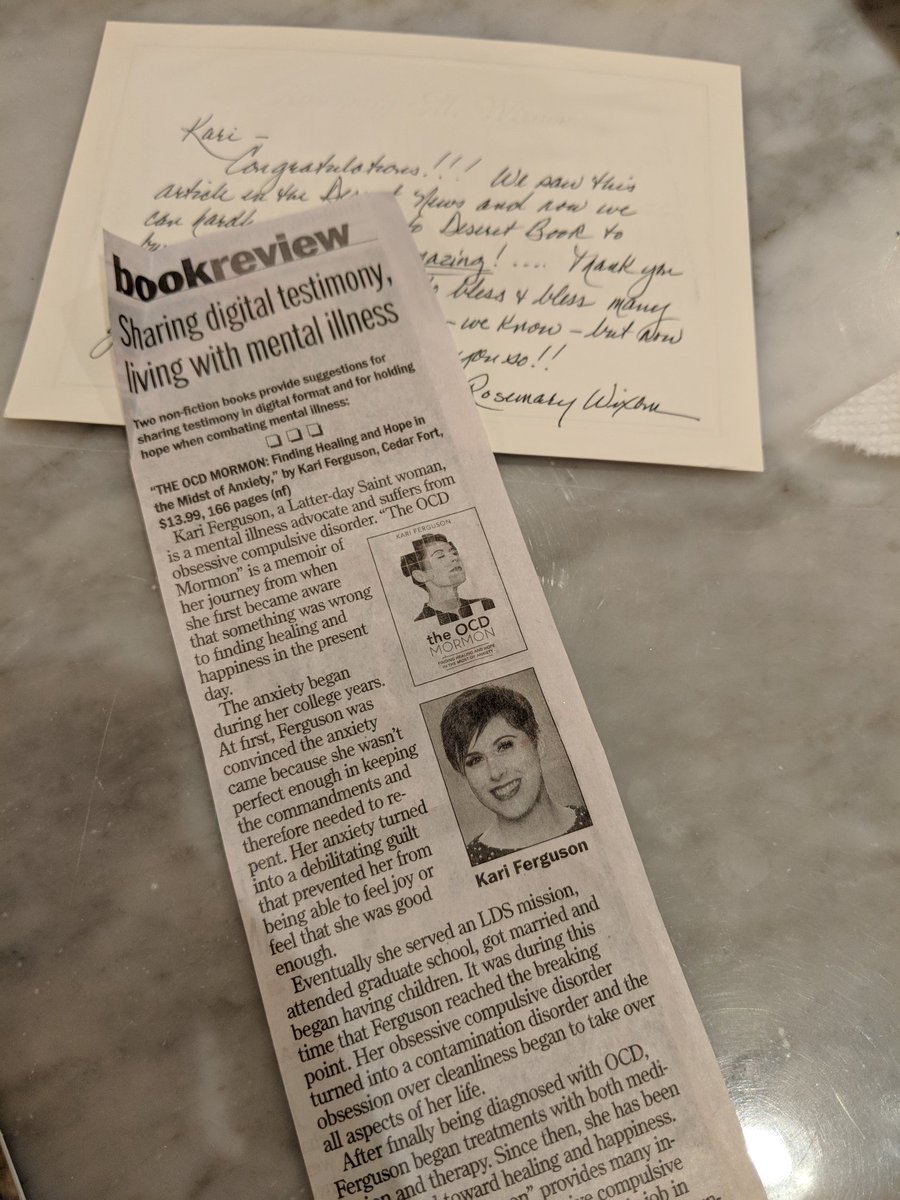 Kari –
Congratulations!!! We saw this
article in the Des t News and now we
can hardl to Deseret Book to
azing! .... Thank you
bless & bless many
– we know – but now
you so!!
Rosemary Wixom
bookreview
Sharing digital testimony,
living with mental illness
Two non-fiction books provide suggestions for
sharing testimony in digital format and for holding
hope when combating mental illness:
"THE OCD MORMON: Finding Healing and Hope in
the Midst of Anxiety," by Kari Ferguson, Cedar Fort,
$13.99, 166 pages (nf)
Kari Ferguson, a Latter-day Saint woman,
is a mental illness advocate and suffers from
obsessive compulsive disorder. "The OCD
Mormon" is a memoir of
her journey from when
she first became aware
that something was wrong
to finding healing and
happiness in the present
day.
The anxiety began
during her college years.
At first, Ferguson was
convinced the anxiety
came because she wasn't
perfect enough in keeping
the commandments and
therefore needed to re-
pent. Her anxiety turned
into a debilitating guilt
that prevented her from
being able to feel joy or
feel that she was good
enough.
KARI FERGUSON
the OCD
MORMON
FINDING HEALING AND HOPE
IN THE MIDST OF ANXIETY
Kari Ferguson
Eventually she served an LDS mission,
attended graduate school, got married and
began having children. It was during this
time that Ferguson reached the breaking
point. Her obsessive compulsive disorder
turned into a contamination disorder and the
obsession over cleanliness began to take over
all aspects of her life.
After finally being diagnosed with OCD,
Ferguson began treatments with both medi-
ion and therapy. Since then, she has been
toward healing and happiness.
on" provides many in-
ive compulsive
job in